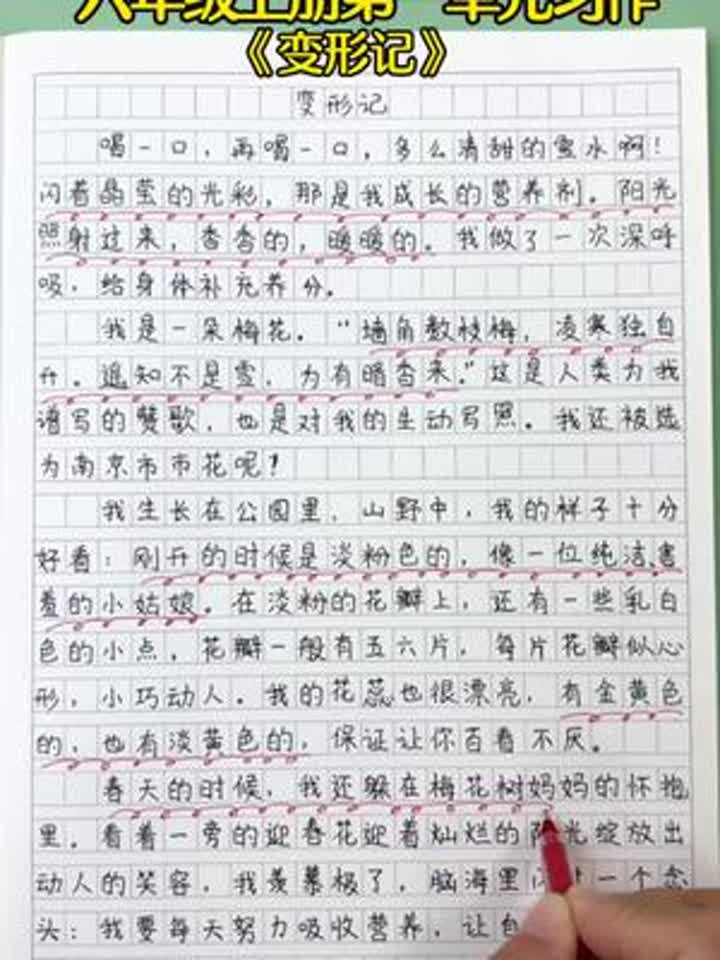 六年级上册第一单元习作
《变形记》
变形记
喝一口，再喝一口，多么清甜的雪水啊！
闪着晶莹的光彩，那是我成长的营养剂。阳光
照射过来，香香的，暖暖的。我做了一次深呼
吸，给身体补充养分。
我是一朵梅花。“墙角数枝梅，凌寒独自
开。遥知不是雪，为有暗香来。”这是人类为我
谱写的赞歌，也是对我的生动写照。我还被选
为南京市市花呢！
我生长在公园里、山野中，我的样子十分
好看：刚开的时候是淡粉色的，像一位纯洁、害
羞的小姑娘。在淡粉的花瓣上，还有一些乳白
色的小点，花瓣一般有五六片，每片花瓣似心
形，小巧动人。我的花蕊也很漂亮，有金黄色
的，也有淡黄色的，保证让你百看不厌。
春天的时候，我还躲在梅花树妈妈的怀抱
里。看着一旁的迎春花迎着灿烂的阳光绽放出
动人的笑容，我羡慕极了，脑海里 一个念
头：我要每天努力吸收营养，让自